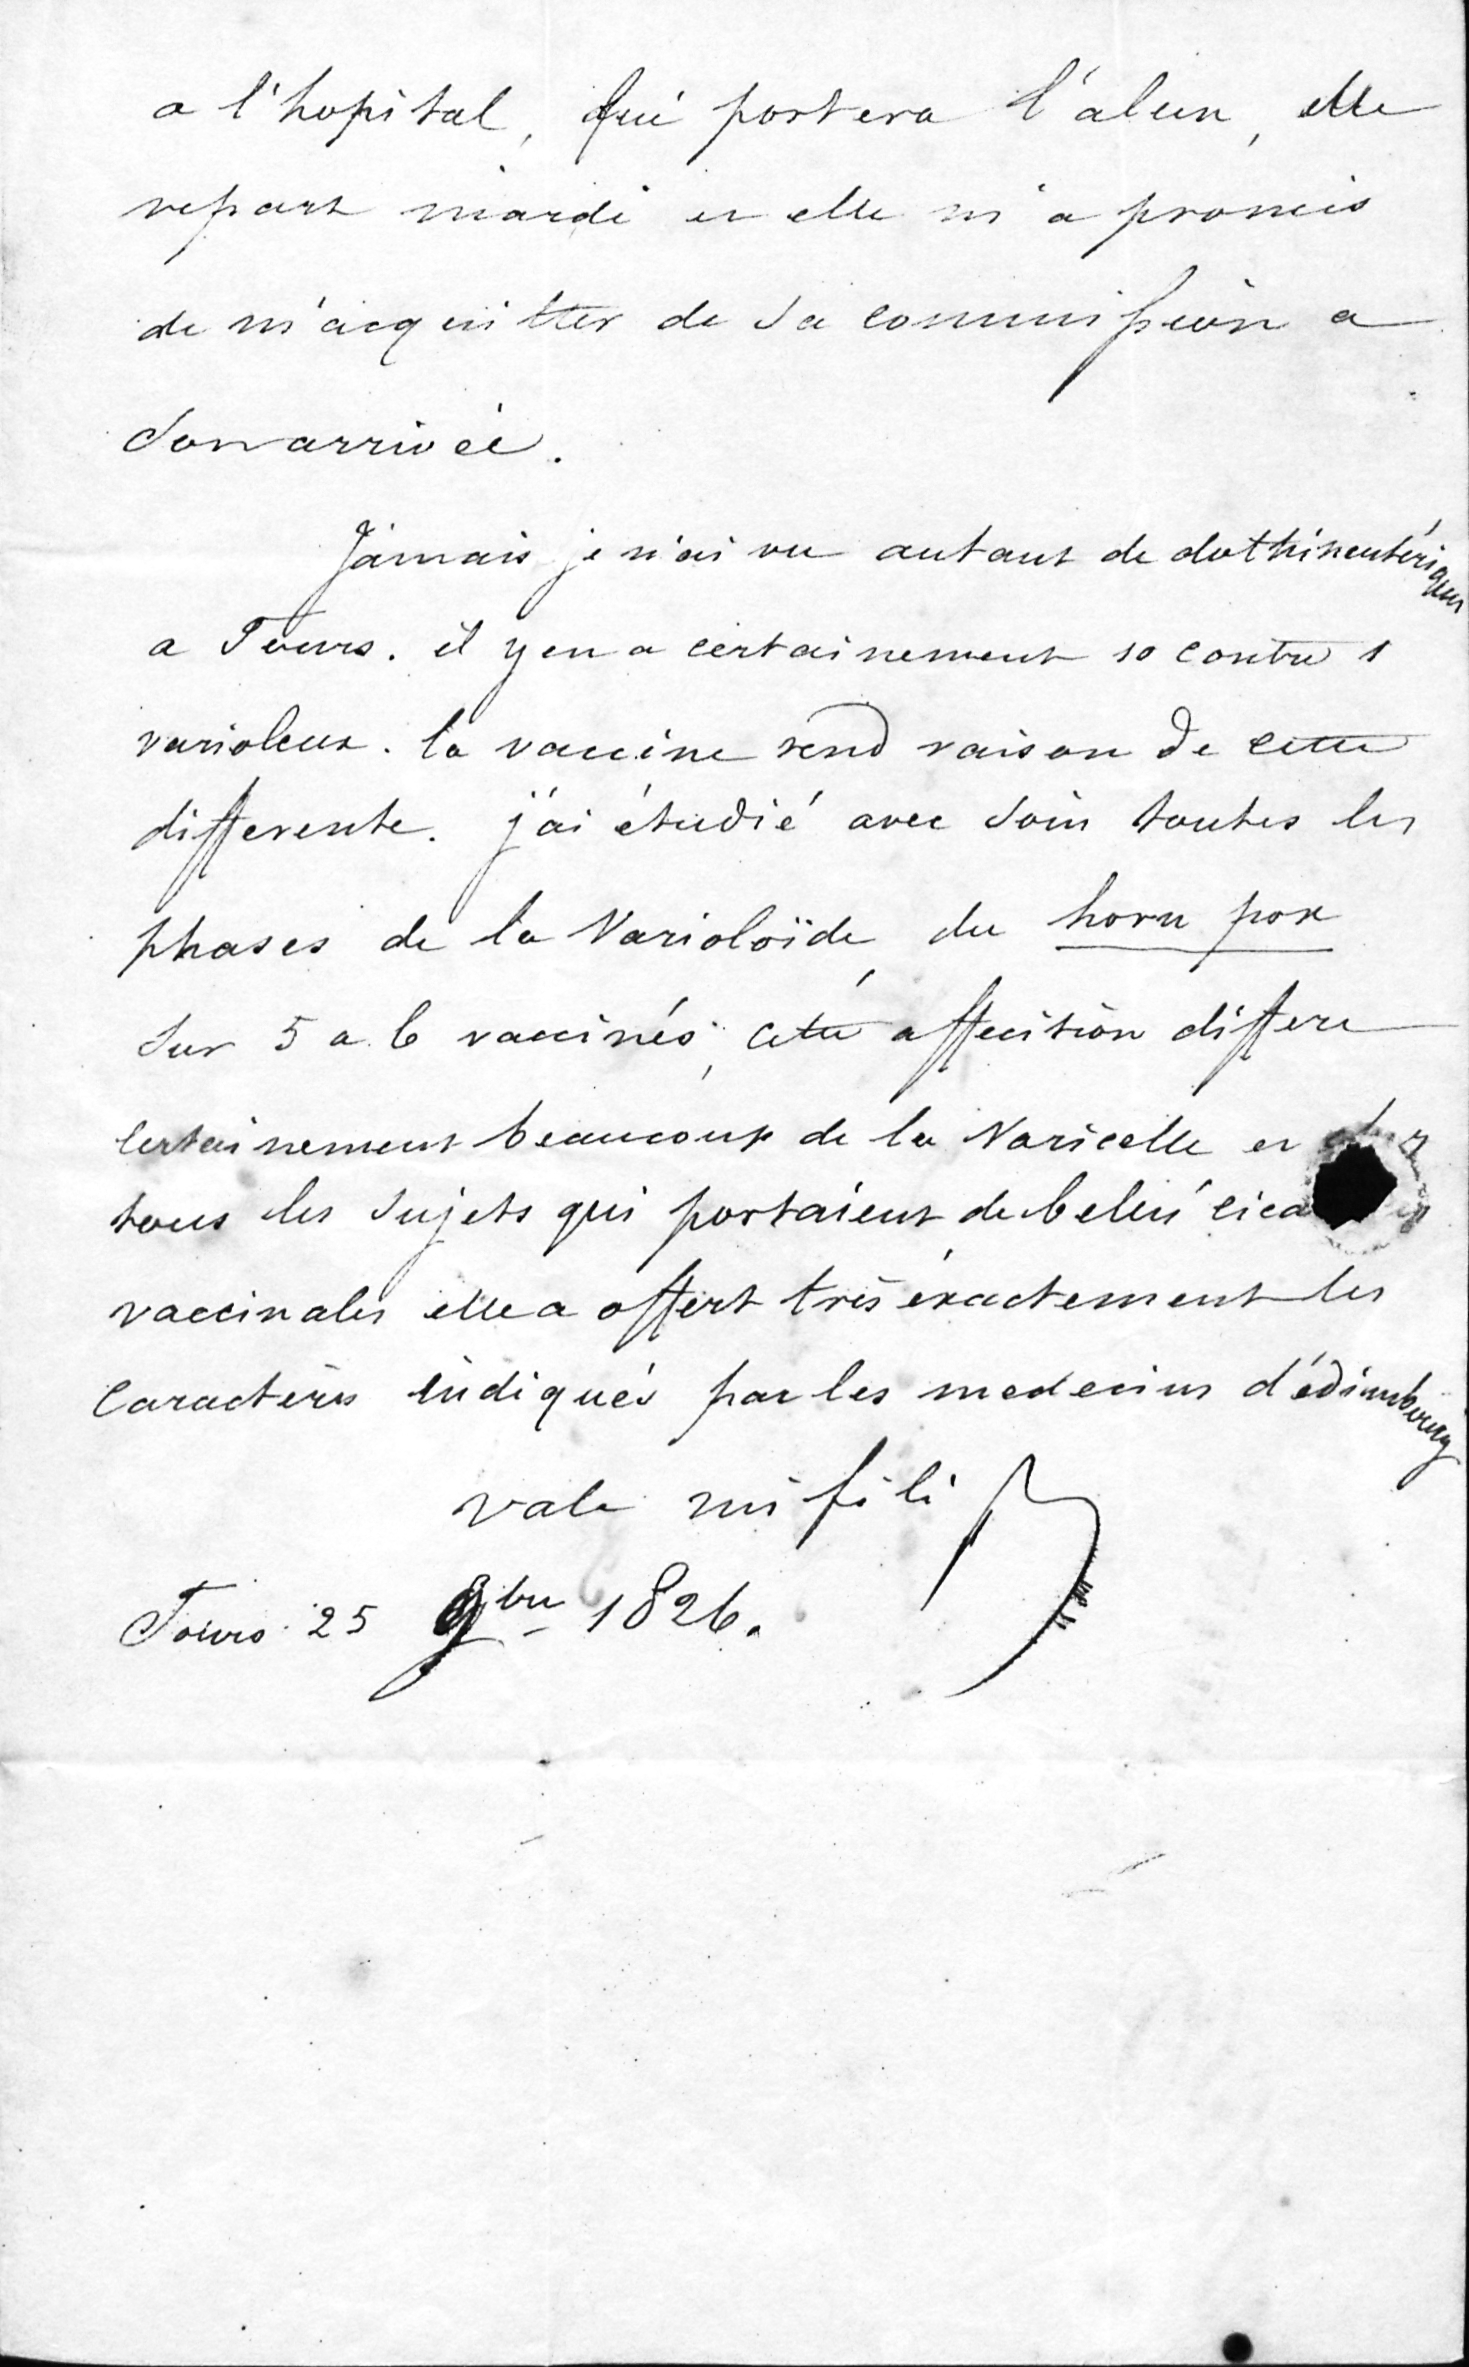 a l'hopital, qui portera l'alun, elle
repart mardi et elle m'a promis
de m'acquitter de sa commission a
son arrivée.
Jamais je n'ai vu autant de dothinentériques
a Tours. il y en a certainement 10 contre 1
varioleux. la vaccine rend raison de cette
differente. j'ai étudié avec soin toutes les
phases de la Varioloïde, du horn pox
sur 5 a 6 vaccinés, cette affection differe
certainement beaucoup de la Varicelle et chez
tous les sujets qui portaient de belles cica
vaccinales elle a offert très éxactement les
caractères indiqués par les medecins d'édimbourg
vale mi fili
Tours 25 9bre 1826.